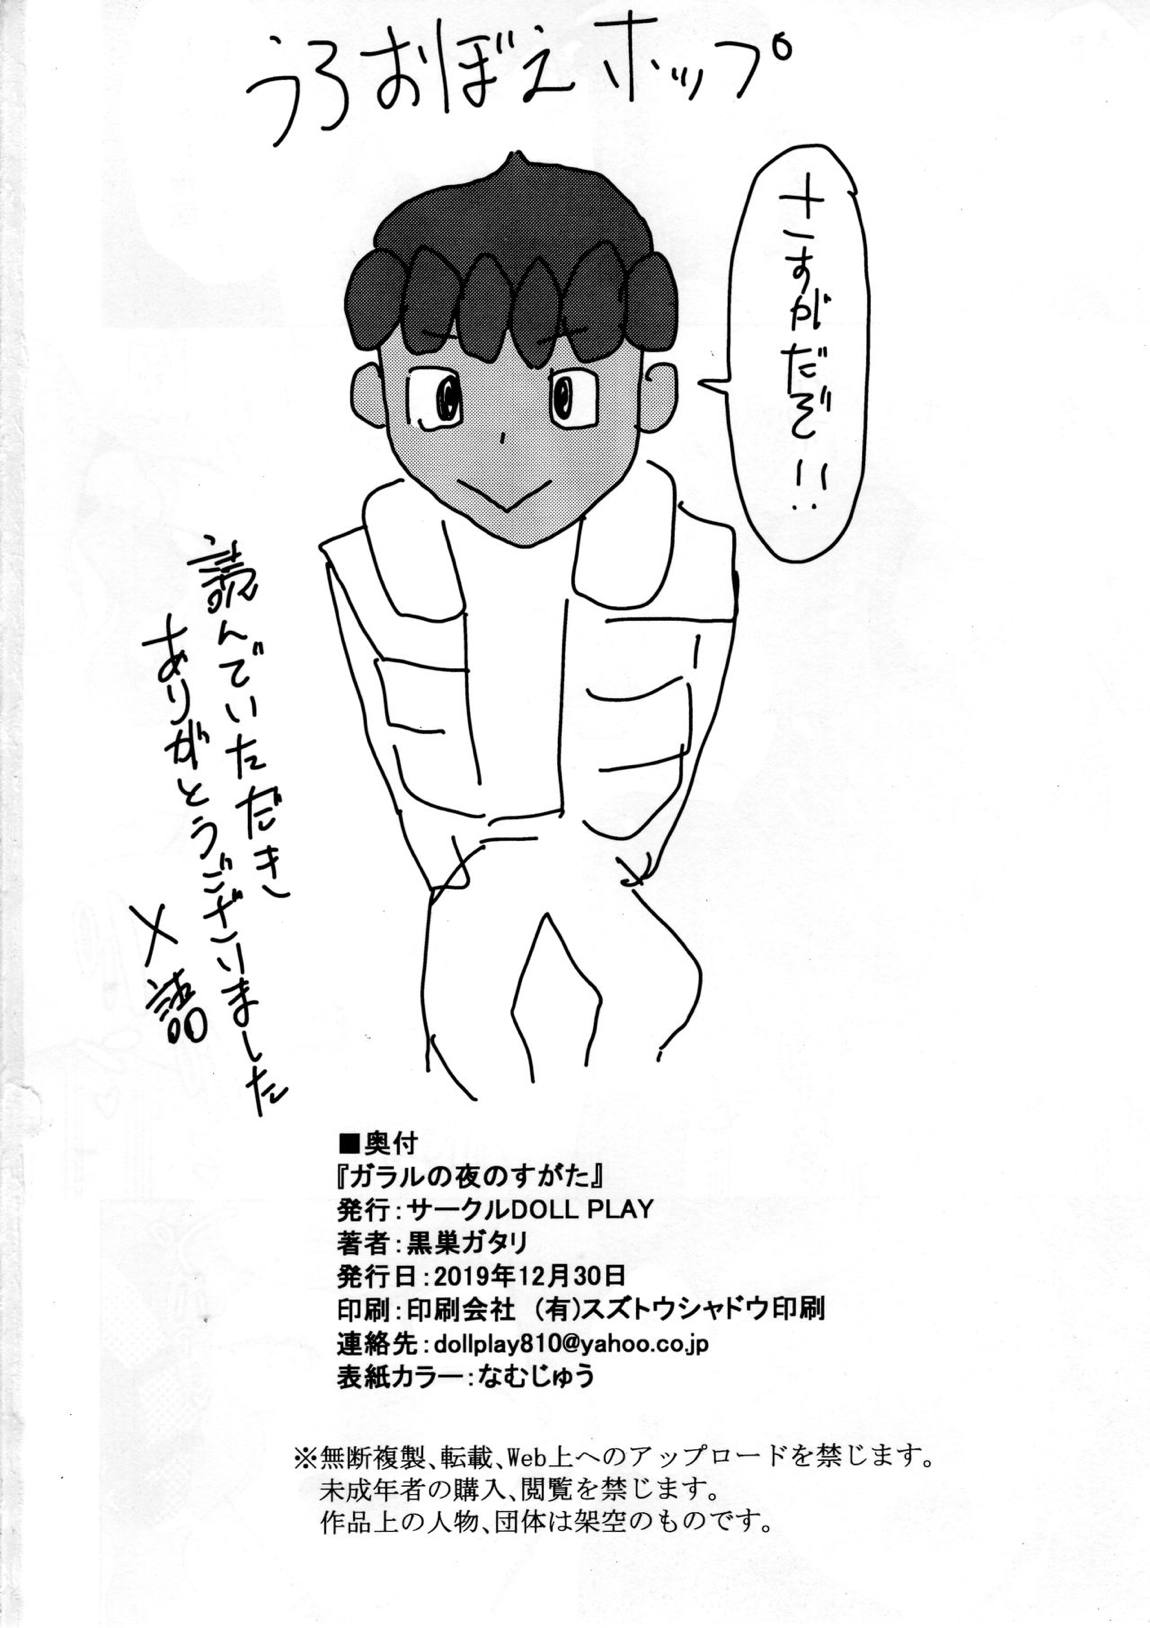 うろおぼえホップ
さすがだぞ!!
読んでいただき
ありがとうございました
〆 詰
■奥付
『ガラルの夜のすがた』
発行：サークルDOLL PLAY
著者：黒巣ガタリ
発行日：2019年12月30日
印刷：印刷会社　(有)スズトウシャドウ印刷
連絡先：dollplay810@yahoo.co.jp
表紙カラー：なむじゅう
※無断複製、転載、Web上へのアップロードを禁じます。
未成年者の購入、閲覧を禁じます。
作品上の人物、団体は架空のものです。